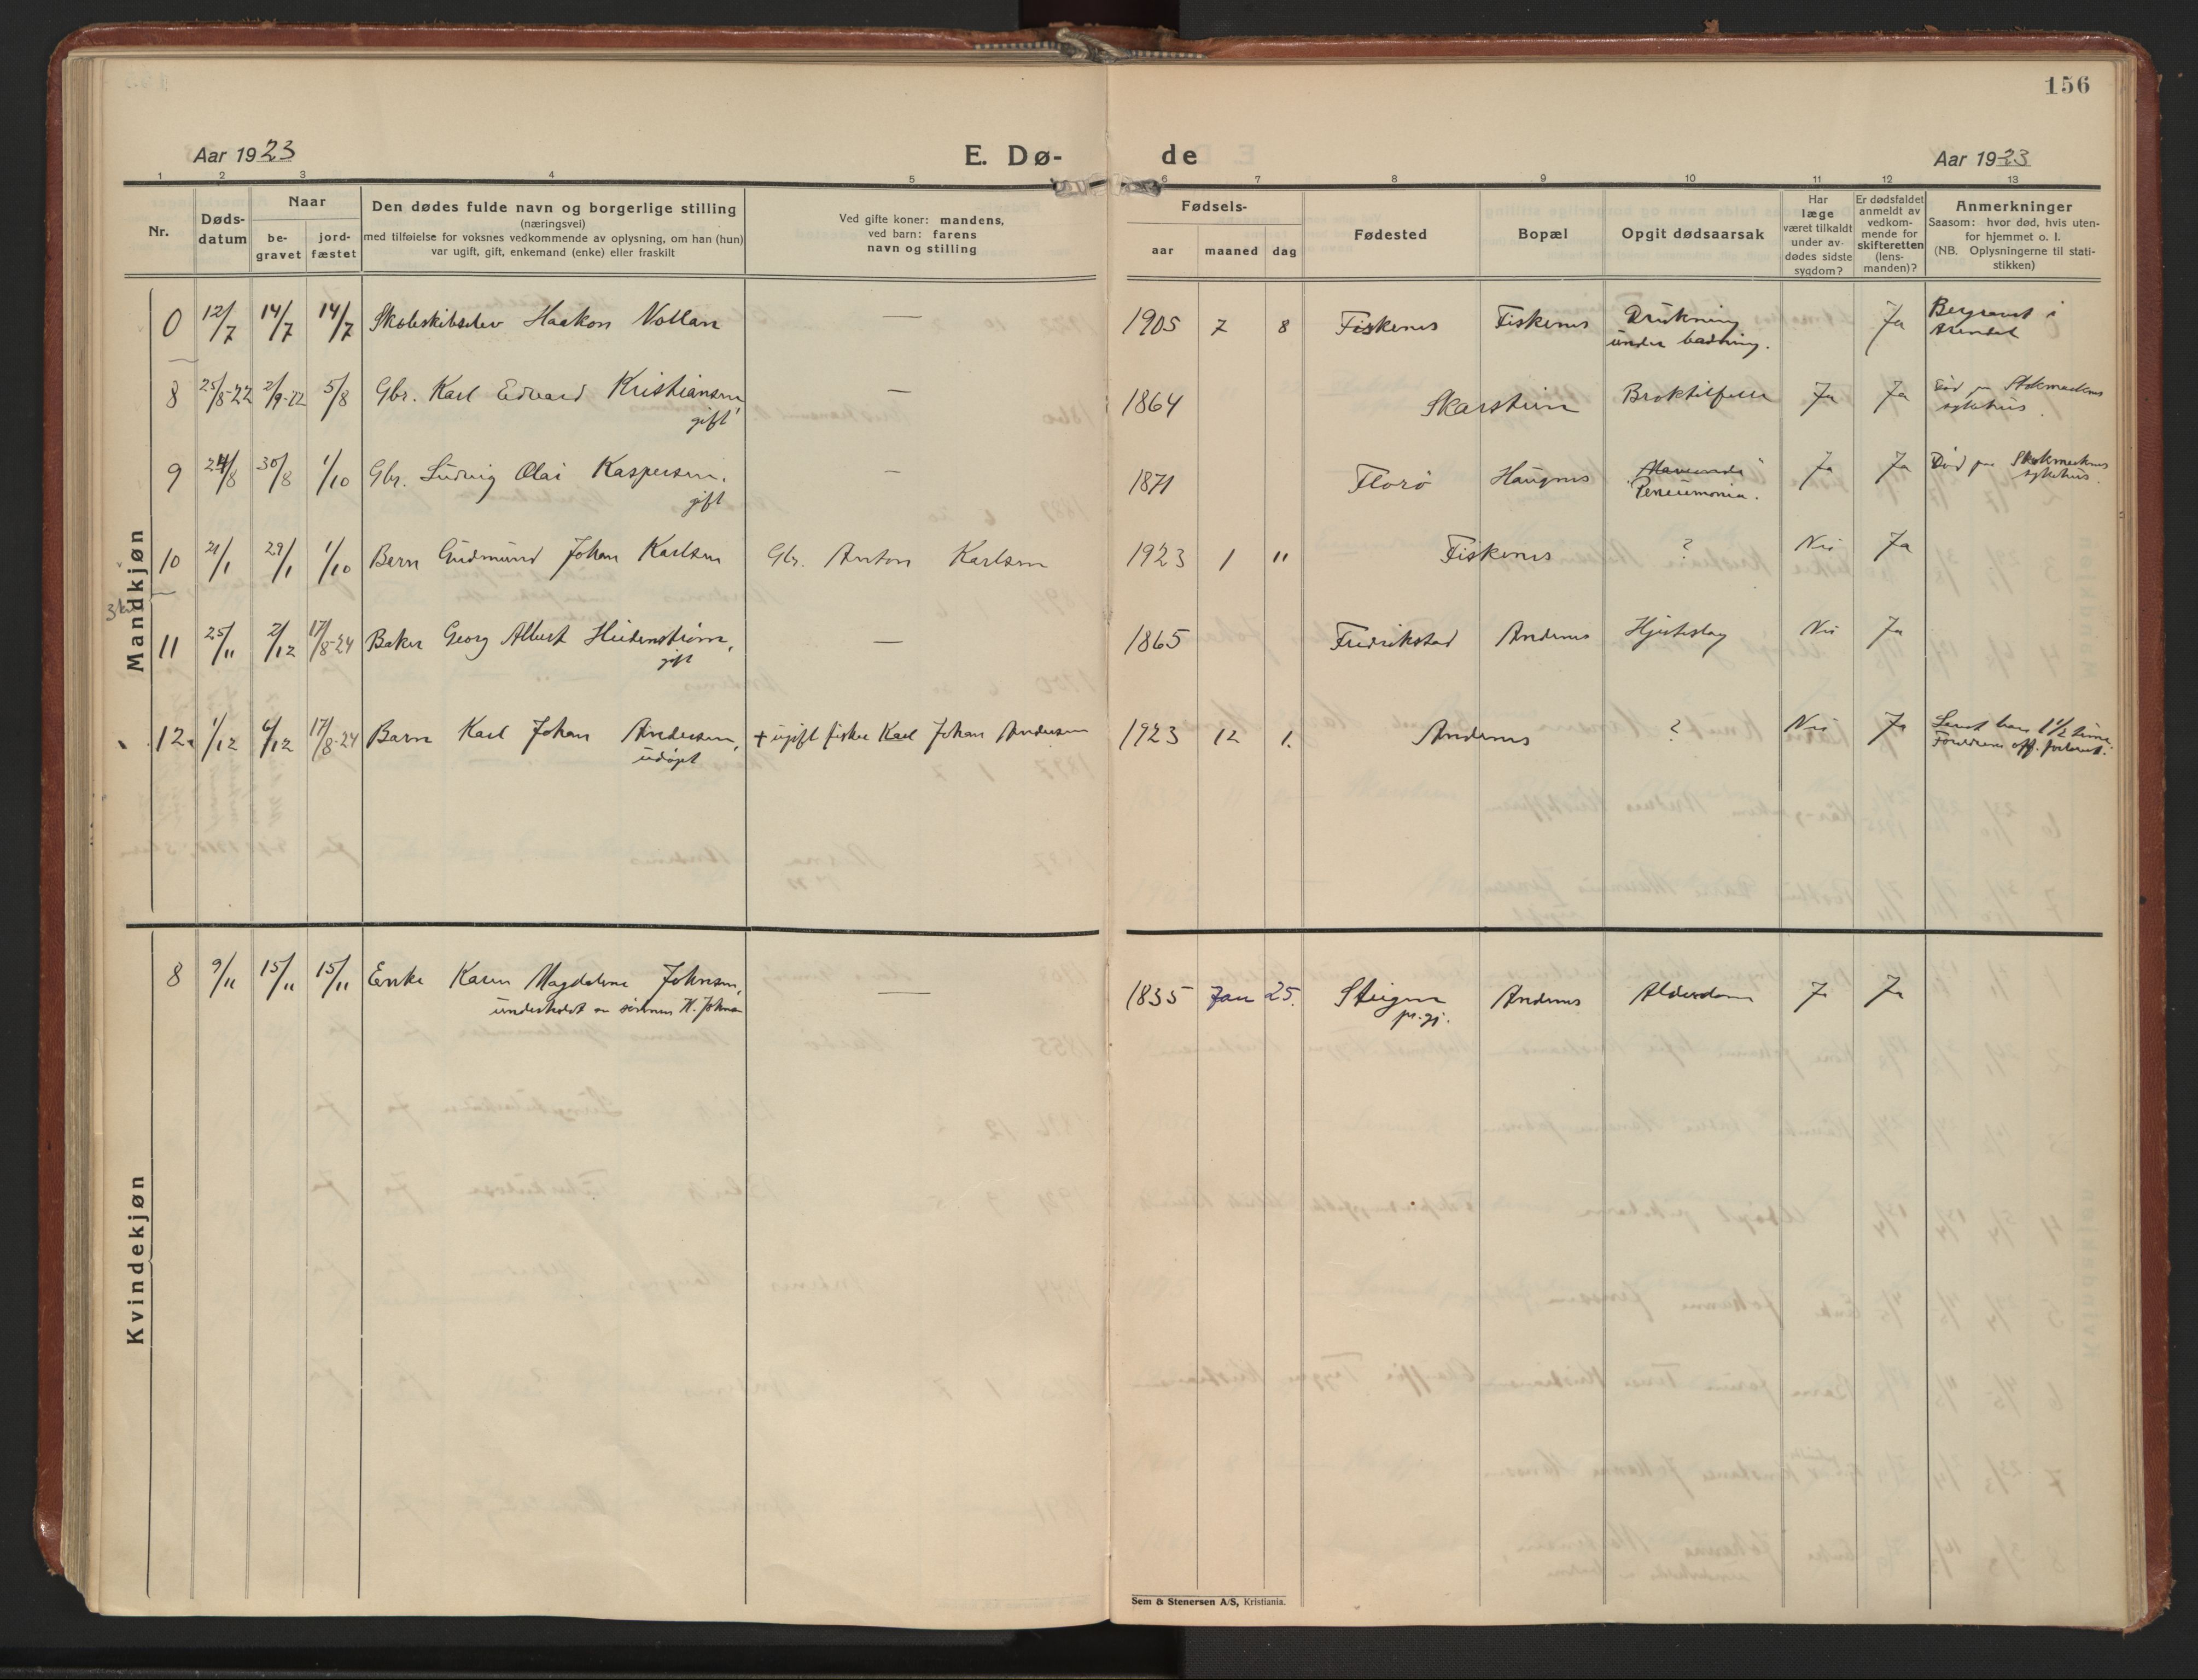 156
Aar 1923
E. Dø-
de
Aar 1923
1 2 3 4 5 6 7 8 9 10 11 12 13
Nr.
Døds-
datum
Naar
be-
gravet
jord-
fæstet
Den dødes fulde navn og borgerlige stilling
(næringsvei)
med tilføielse for voksnes vedkommende av oplysning, om han (hun)
var ugift, gift, enkemand (enke) eller fraskilt
Ved gifte koner: mandens,
ved barn: farens
navn og stilling
Fødsels-
aar maaned dag
Fødested
Bopæl
Opgit dødsaarsak
Har
læge
været tilkaldt
under av-
dødes sidste
sygdom?
Er dødsfaldet
anmeldt av
vedkom-
mende for
skifteretten
(lens-
manden)?
Anmerkninger
Saasom: hvor død, hvis uten-
for hjemmet o. l.
(NB. Oplysningerne til stati-
stikken)
Mandkjøn
0 12/7 14/7 14/7 Skoleskibselev Haakon Nollan — 1905 7 8 Fiskenes Fiskenes Drukning Ja Begravet i
under badning. Arendal
8 25/8-22 2/9-22 5/8 Gbr. Karl Edvard Kristiansen, — 1864 Skarstein Broktilfelle Ja Ja Død paa Stokmarknes
gift sykehus.
9 24/8 30/8 1/10 Gbr. Ludvig Olai Kaspersen, — 1871 Florø Haugnes Ja Ja Død paa Stokmarknes
gift Pneumonia. sykehus.
10 21/1 29/1 1/10 Barn Gudmund Johan Karlsen Gbr. Anton Karlsen 1923 1 11 Fiskenes ? Nei Ja
11 25/11 2/12 17/8-24 Baker Georg Albert Heidenstrøm, — 1865 Fredrikstad Andenes Hjerteslag Nei Ja
gift
12. 1/12 6/12 17/8-24 Barn Karl Johan Andersen, + ugift fisker Karl Johan Andersen 1923 12 1. Andenes ? Nei Ja Levet bare 1 1/2 time.
udøpt
Kvindekjøn
8 9/11 15/11 15/11 Enke Karen Magdalena Johnsen, — 1835 Jan 25. Steigen Andenes Alderdom Ja Ja
underholdt av sønnen H. Johnsen pr.gj.
Sem & Stenersen A/S, Kristiania.